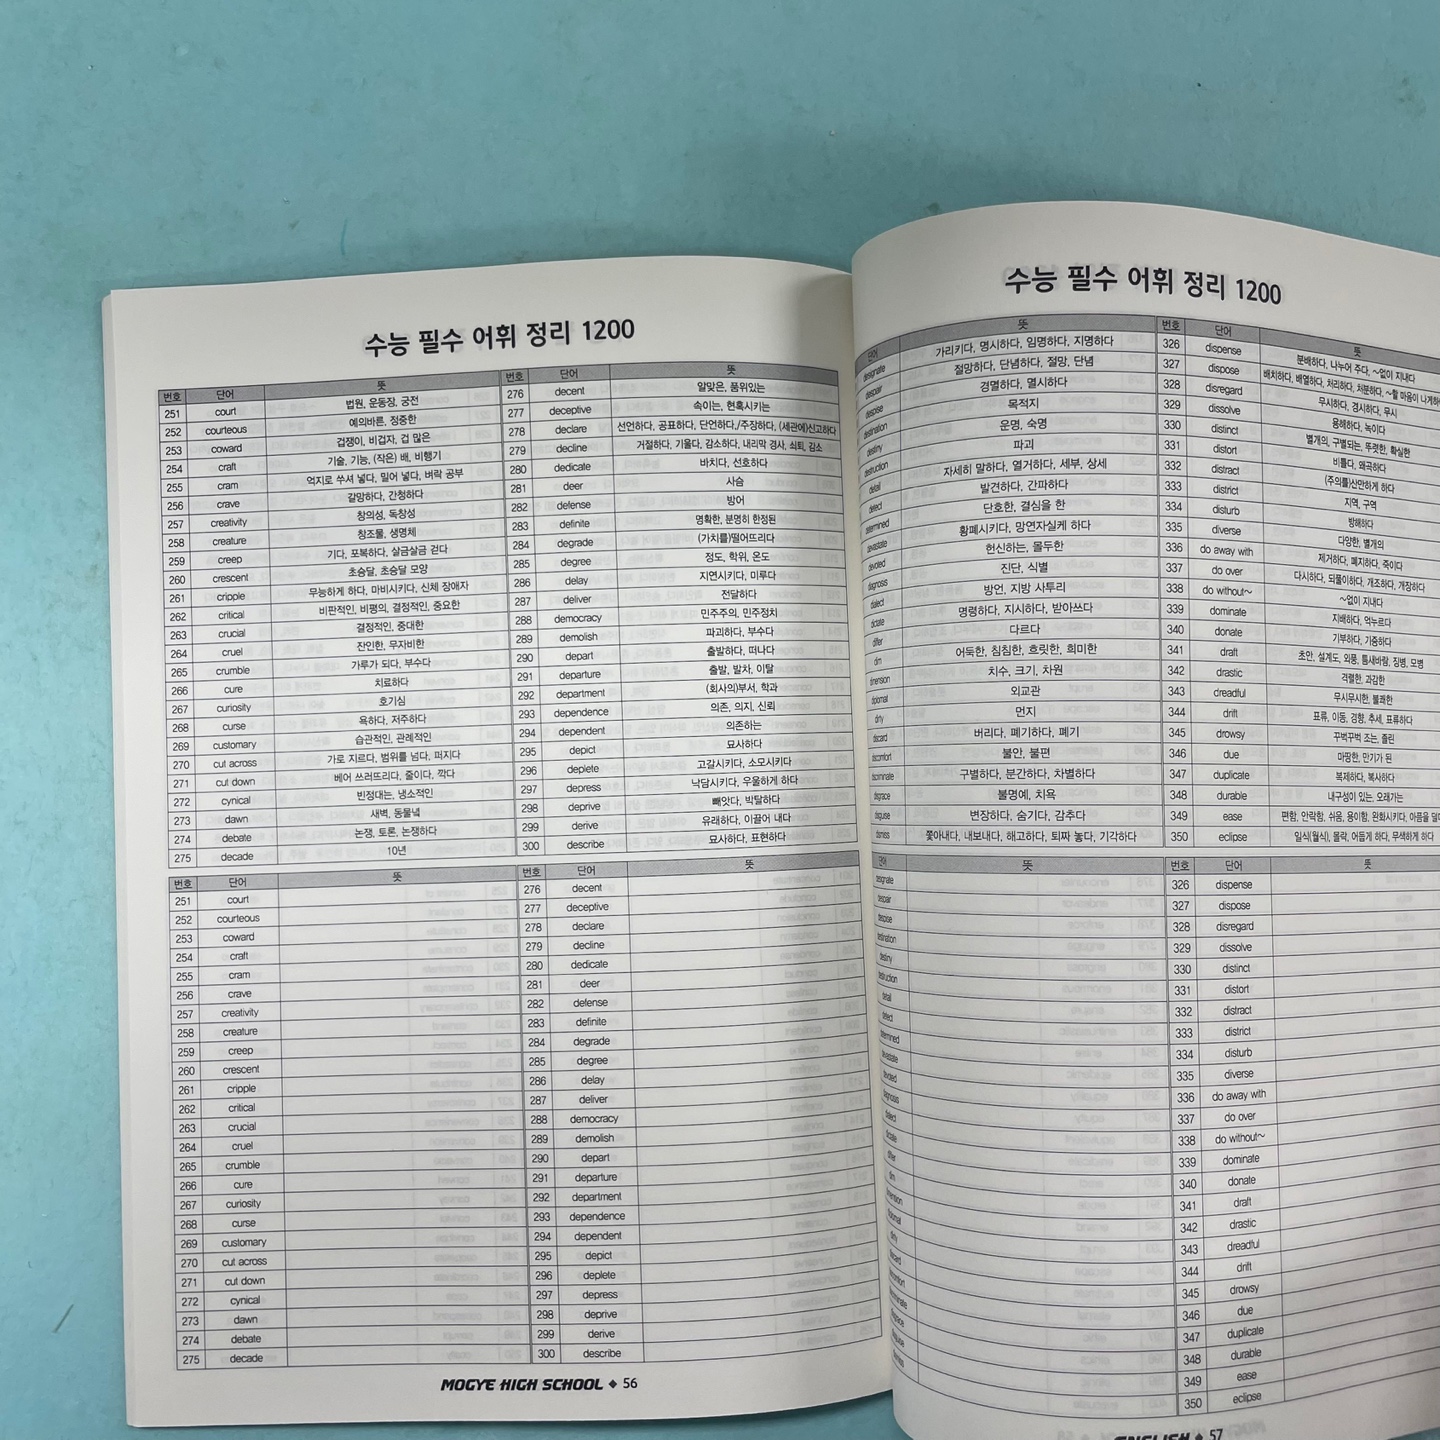 수능 필수 어휘 정리 1200
번호 단어 뜻 번호 단어 뜻
251 court 법원, 운동장, 궁전 276 decent 알맞은, 품위있는
252 courteous 예의바른, 정중한 277 deceptive 속이는, 현혹시키는
253 coward 겁쟁이, 비겁자, 겁 많은 278 declare 선언하다, 공표하다, 단언하다,/주장하다, (세관에)신고하다
254 craft 기술, 기능, (작은) 배, 비행기 279 decline 거절하다, 기울다, 감소하다, 내리막 경사, 쇠퇴, 감소
255 cram 억지로 쑤셔 넣다, 밀어 넣다, 벼락 공부 280 dedicate 바치다, 선호하다
256 crave 갈망하다, 간청하다 281 deer 사슴
257 creativity 창의성, 독창성 282 defense 방어
258 creature 창조물, 생명체 283 definite 명확한, 분명히 한정된
259 creep 기다, 포복하다, 살금살금 걷다 284 degrade (가치를)떨어뜨리다
260 crescent 초승달, 초승달 모양 285 degree 정도, 학위, 온도
261 cripple 무능하게 하다, 마비시키다, 신체 장애자 286 delay 지연시키다, 미루다
262 critical 비판적인, 비평의, 결정적인, 중요한 287 deliver 전달하다
263 crucial 결정적인, 중대한 288 democracy 민주주의, 민주정치
264 cruel 잔인한, 무자비한 289 demolish 파괴하다, 부수다
265 crumble 가루가 되다, 부수다 290 depart 출발하다, 떠나다
266 cure 치료하다 291 departure 출발, 발차, 이탈
267 curiosity 호기심 292 department (회사의)부서, 학과
268 curse 욕하다, 저주하다 293 dependence 의존, 의지, 신뢰
269 customary 습관적인, 관례적인 294 dependent 의존하는
270 cut across 가로 지르다, 범위를 넘다, 퍼지다 295 depict 묘사하다
271 cut down 베어 쓰러뜨리다, 줄이다, 깍다 296 deplete 고갈시키다, 소모시키다
272 cynical 빈정대는, 냉소적인 297 depress 낙담시키다, 우울하게 하다
273 dawn 새벽, 동물녘 298 deprive 빼앗다, 박탈하다
274 debate 논쟁, 토론, 논쟁하다 299 derive 유래하다, 이끌어 내다
275 decade 10년 300 describe 묘사하다, 표현하다
번호 단어 뜻 번호 단어 뜻
251 court 276 decent
252 courteous 277 deceptive
253 coward 278 declare
254 craft 279 decline
255 cram 280 dedicate
256 crave 281 deer
257 creativity 282 defense
258 creature 283 definite
259 creep 284 degrade
260 crescent 285 degree
261 cripple 286 delay
262 critical 287 deliver
263 crucial 288 democracy
264 cruel 289 demolish
265 crumble 290 depart
266 cure 291 departure
267 curiosity 292 department
268 curse 293 dependence
269 customary 294 dependent
270 cut across 295 depict
271 cut down 296 deplete
272 cynical 297 depress
273 dawn 298 deprive
274 debate 299 derive
275 decade 300 describe
MOGYE HIGH SCHOOL ◆ 56
수능 필수 어휘 정리 1200
단어 뜻 번호 단어 뜻
designate 가리키다, 명시하다, 임명하다, 지명하다 326 dispense 분배하다, 나누어 주다, ~없이 지내다
despair 절망하다, 단념하다, 절망, 단념 327 dispose 배치하다, 배열하다, 처리하다, 처분하다, ~할 마음이 나게하
despise 경멸하다, 멸시하다 328 disregard 무시하다, 경시하다, 무시
destination 목적지 329 dissolve 용해하다, 녹이다
destiny 운명, 숙명 330 distinct 별개의, 구별되는, 뚜렷한, 확실한
destruction 파괴 331 distort 비틀다, 왜곡하다
detail 자세히 말하다, 열거하다, 세부, 상세 332 distract (주의를)산만하게 하다
detect 발견하다, 간파하다 333 district 지역, 구역
determined 단호한, 결심을 한 334 disturb 방해하다
devastate 황폐시키다, 망연자실케 하다 335 diverse 다양한, 별개의
devoted 헌신하는, 몰두한 336 do away with 제거하다, 폐지하다, 죽이다
diagnosis 진단, 식별 337 do over 다시하다, 되풀이하다, 개조하다, 개장하다
dialect 방언, 지방 사투리 338 do without~ ~없이 지내다
dictate 명령하다, 지시하다, 받아쓰다 339 dominate 지배하다, 억누르다
differ 다르다 340 donate 기부하다, 기증하다
dim 어둑한, 침침한, 흐릿한, 희미한 341 draft 초안, 설계도, 외풍, 틈새바람, 징병, 모병
dimension 치수, 크기, 차원 342 drastic 격렬한, 과감한
diplomat 외교관 343 dreadful 무시무시한, 불쾌한
dirty 먼지 344 drift 표류, 이동, 경향, 추세, 표류하다
discard 버리다, 폐기하다, 폐기 345 drowsy 꾸벅꾸벅 조는, 졸린
discomfort 불안, 불편 346 due 마땅한, 만기가 된
discriminate 구별하다, 분간하다, 차별하다 347 duplicate 복제하다, 복사하다
disgrace 불명예, 치욕 348 durable 내구성이 있는, 오래가는
disguise 변장하다, 숨기다, 감추다 349 ease 편함, 안락함, 쉬움, 용이함, 완화시키다, 아픔을 덜
dismiss 쫓아내다, 내보내다, 해고하다, 퇴짜 놓다, 기각하다 350 eclipse 일식(월식), 몰락, 어둡게 하다, 무색하게 하다
단어 뜻 번호 단어 뜻
designate 326 dispense
despair 327 dispose
despise 328 disregard
destination 329 dissolve
destiny 330 distinct
destruction 331 distort
detail 332 distract
detect 333 district
determined 334 disturb
devastate 335 diverse
devoted 336 do away with
diagnosis 337 do over
dialect 338 do without~
dictate 339 dominate
differ 340 donate
dim 341 draft
dimension 342 drastic
diplomat 343 dreadful
dirty 344 drift
discard 345 drowsy
discomfort 346 due
discriminate 347 duplicate
disgrace 348 durable
disguise 349 ease
dismiss 350 eclipse
ENGLISH ◆ 57